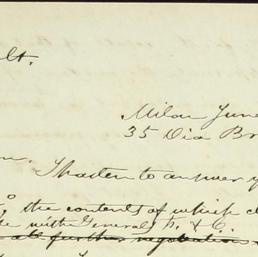 lt.
Milan June
35 Via Br
m. I hasten to answer y
, the contents of which d
de with General F. & C.
all further negotiations